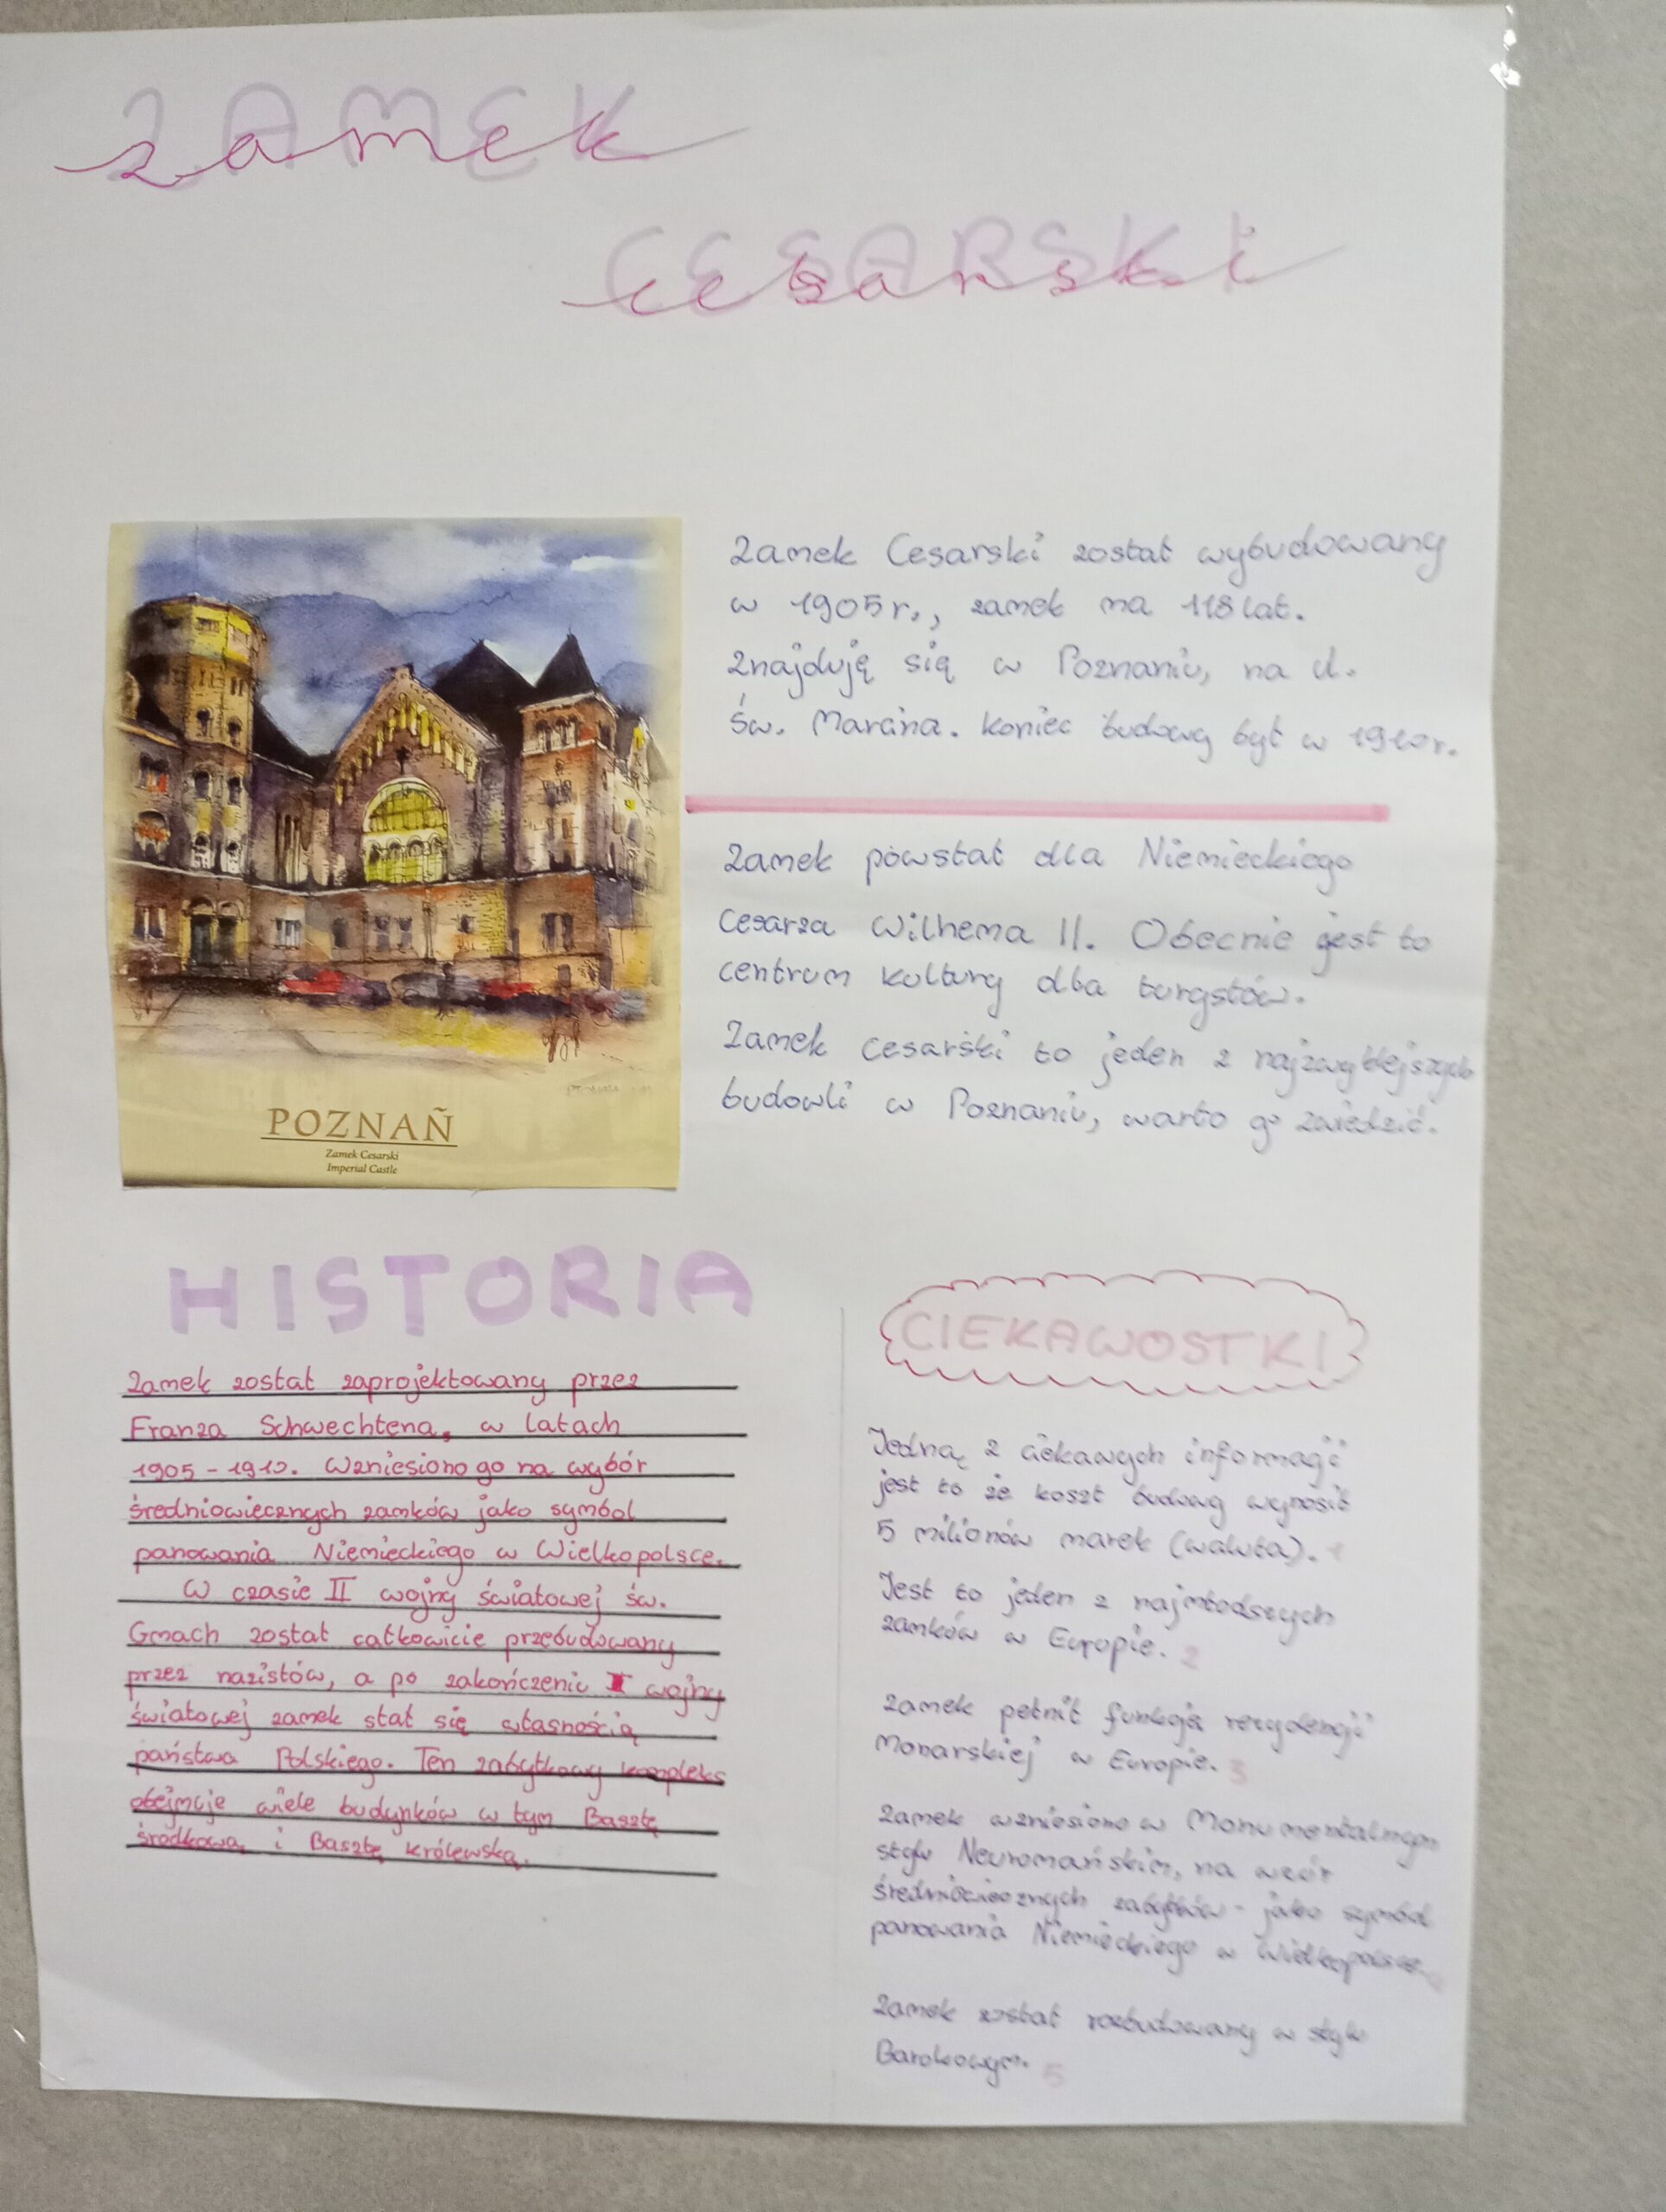 zamek
cesarski
Zamek Cesarski został wybudowany
w 1905r., zamek ma 118 lat.
Znajduję się w Poznaniu, na ul.
św. Marcina. koniec budowy był w 1910r.
Zamek powstał dla Niemieckiego
Cesarza Wilhema II. Obecnie jest to
centrum kultury dla turystów.
Zamek cesarski to jeden z najzwyklejszych
budowli w Poznaniu, warto go zwiedzić.
POZNAÑ
Zamek Cesarski
Imperial Castle
HISTORIA
Zamek został zaprojektowany przez
Franza Schwechtena, w latach
1905-1910. Wzniesiono go na wybór
średniowiecznych zamków jako symbol
panowania Niemieckiego w Wielkopolsce.
W czasie II wojny światowej św.
Gmach został całkowicie przebudowany
przez nazistów, a po zakończeniu wojny
światowej zamek stał się własnością
państwa Polskiego. Ten zabytkowy kompleks
obejmuje wiele budynków w tym Basztę
środkową i Basztę królewską.
CIEKAWOSTKI
Jedną z ciekawych informacji
jest to że koszt budowy wynosił
5 milionów marek (waluta). 1
Jest to jeden z najmłodszych
zamków w Europie. 2
zamek pełnił funkcję rezydencji
Monarskiej w Europie. 3
Zamek wzniesiono w Monumentalnym
stylu Neuromańskim, na wzór
średniowiecznych zabytków - jako symbol
panowania Niemieckiego w Wielkopolsce.
Zamek został rozbudowany w stylu
Barokowym. 5